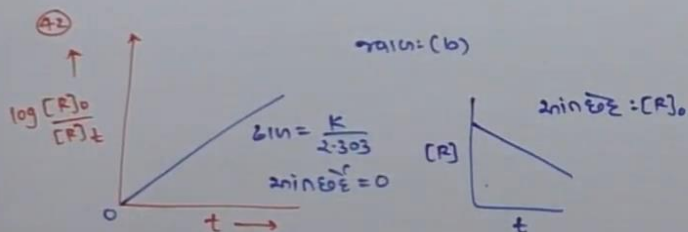 42
જવાબ: (b)
log [R]₀ / [R]t
ઢાળ = K / 2.303
આંતઃછેદ = 0
0
t
આંતઃછેદ = [R]₀
[R]
t